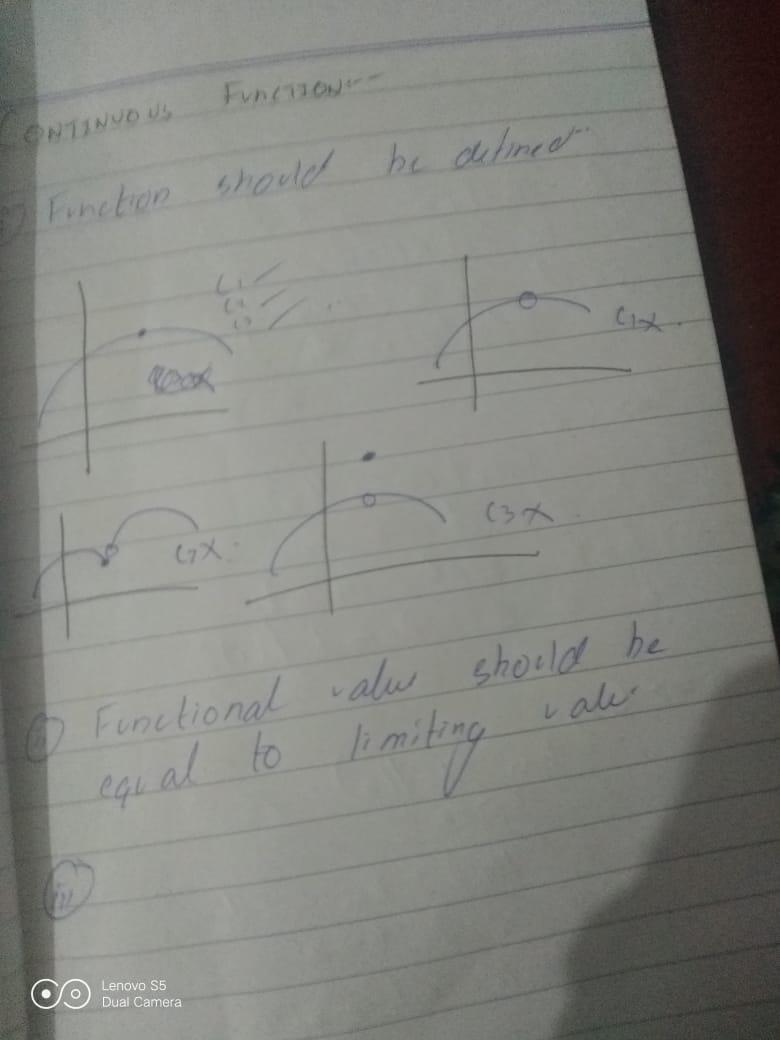 CONTINUOUS FUNCTION
i) Function should be defined
C1
C2
C3
C1x
C2x
C3x
ii) Functional value should be
equal to limiting value
iii)
Lenovo S5
Dual Camera